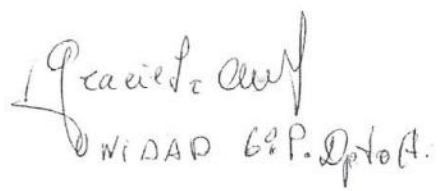 Graciela
UNIDAD 6º P. Dpto A.